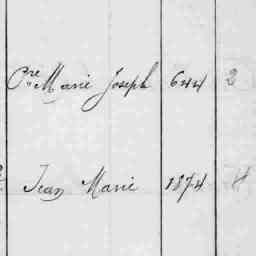 Cne Marie Joseph 644 2
Jean Marie 1874 4